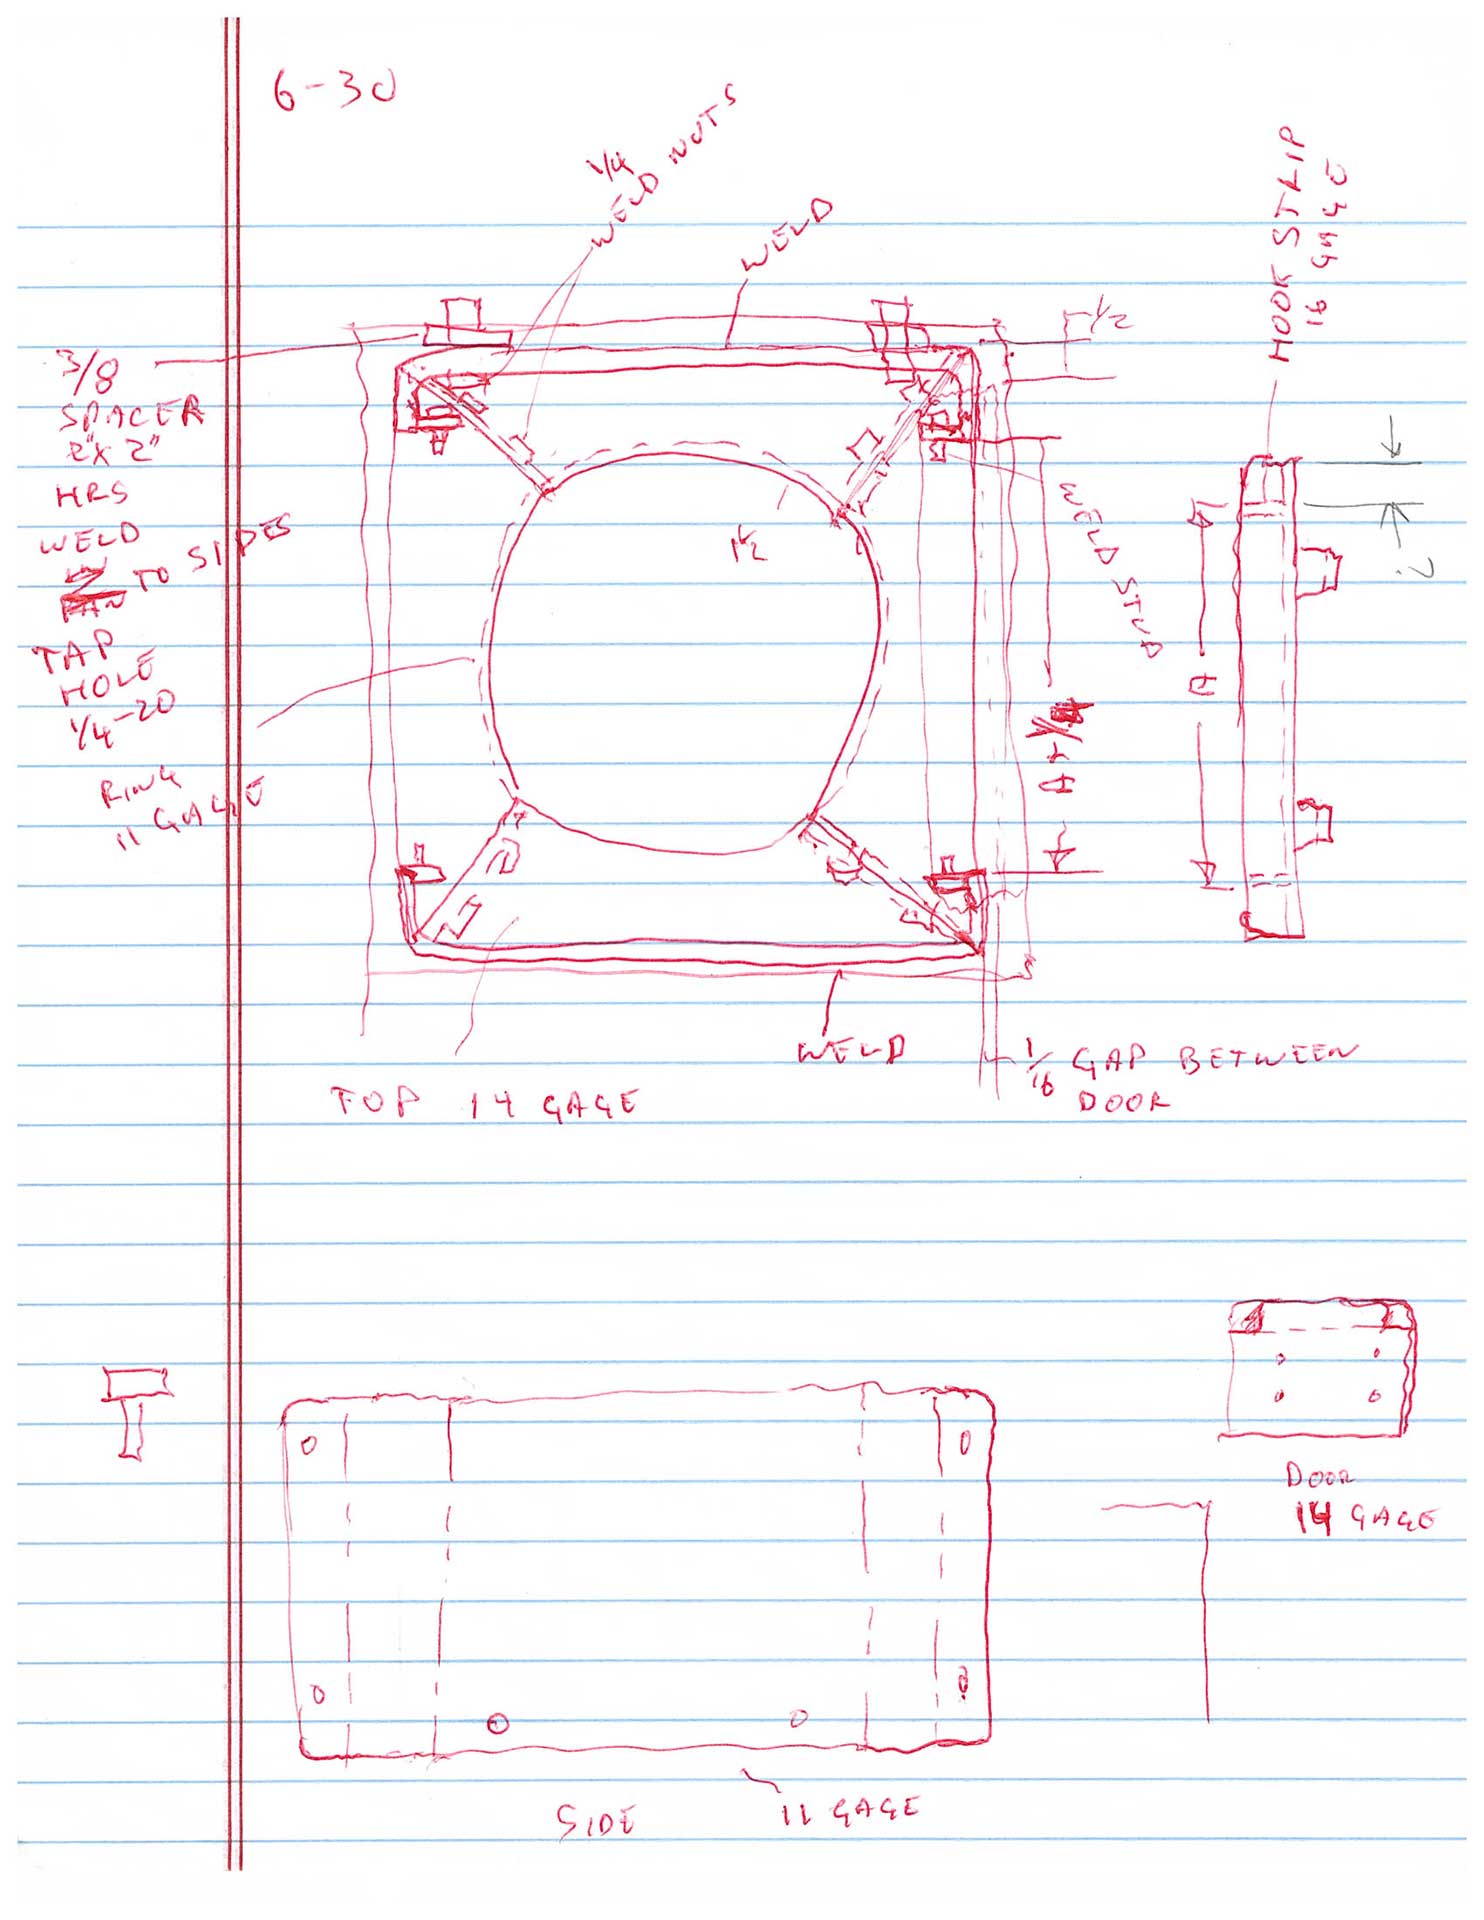 6-30
1/4
WELD NUTS
WELD
HOOK STRIP
16 GAGE
1/2
3/8
SPACER
2"X 2"
HRS
WELD
TO SIDES
TAP
HOLE
1/4-20
RING
11 GAGE
1 1/2
WELD STUD
A
WELD
1/16 GAP BETWEEN
DOOR
TOP 14 GAGE
DOOR
14 GAGE
SIDE
11 GAGE